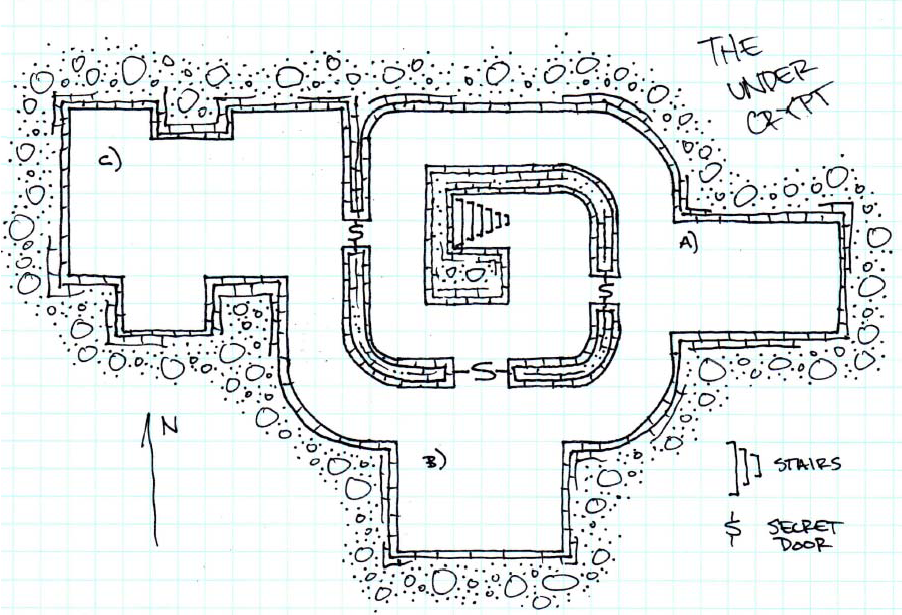 THE
UNDER
CRYPT
C)
S
A)
S
S
B)
N
STAIRS
S SECRET
DOOR